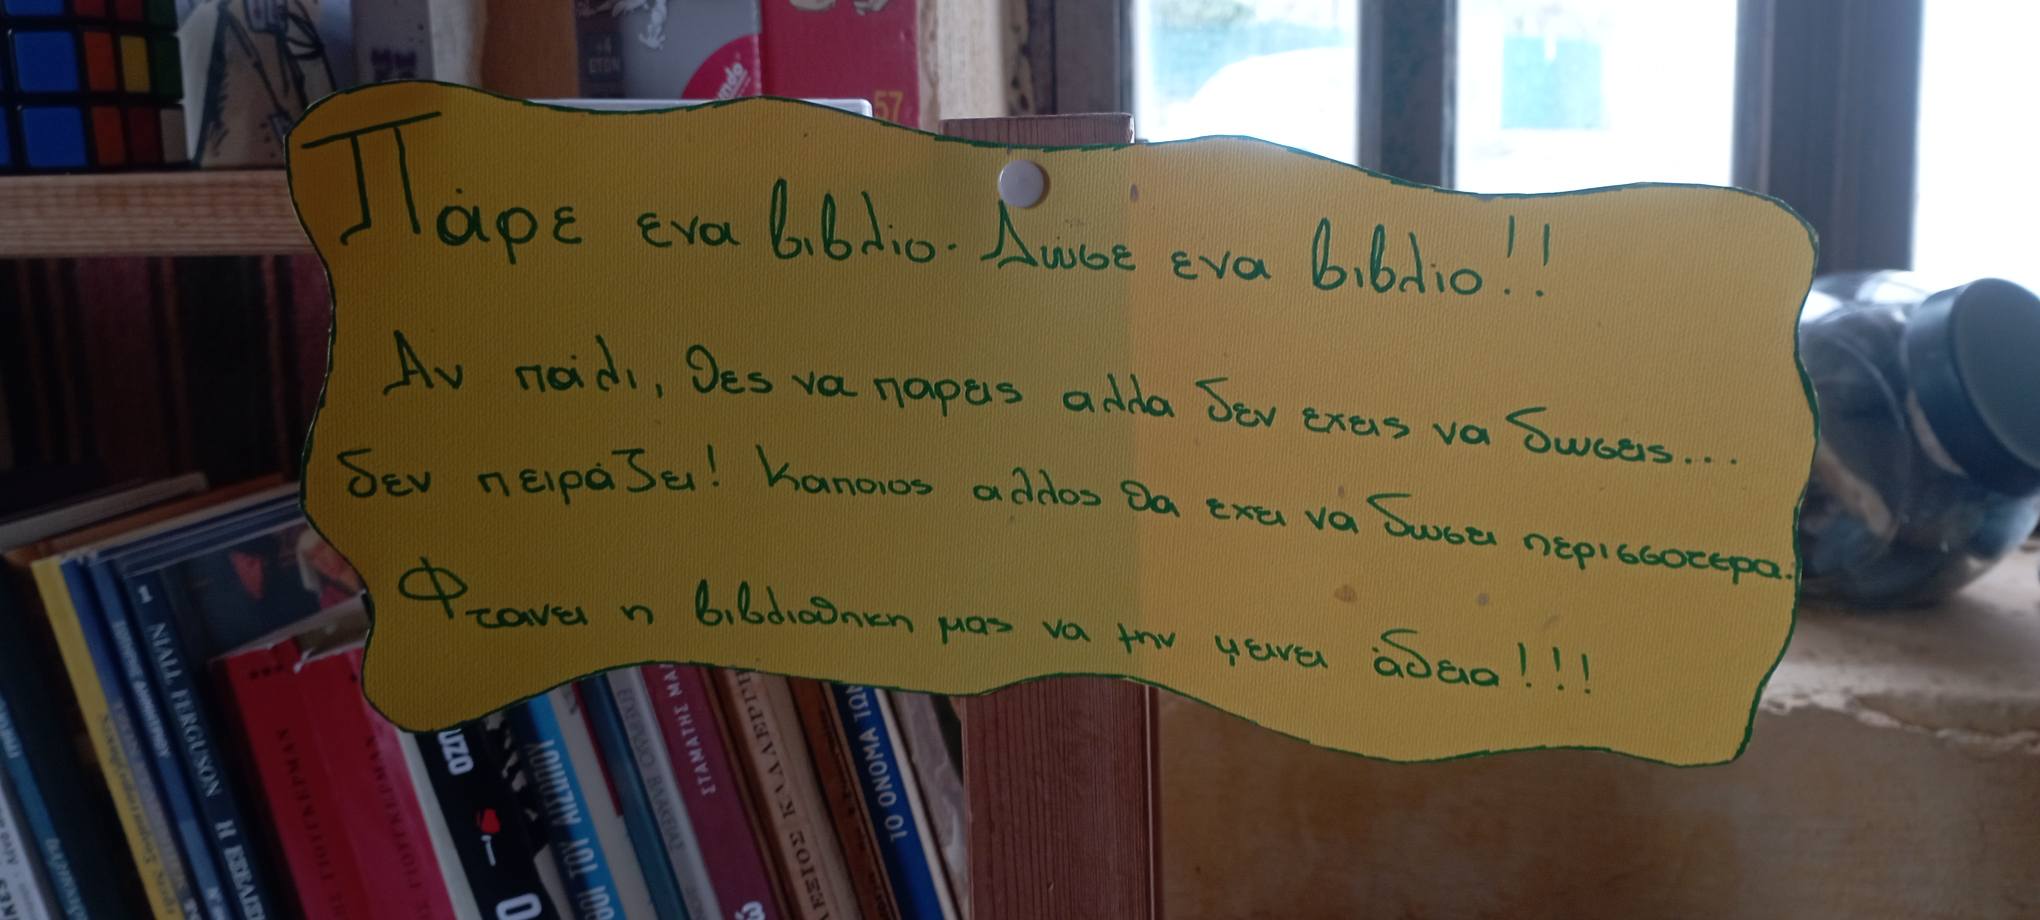 Πάρε ενα βιβλιο. Δώσε ενα βιβλιο!!
Αν πάλι, θες να παρεις αλλα δεν εχεις να δωσεις...
δεν πειράζει! Καποιος αλλος θα εχει να δωσει περισσοτερα.
Φτανει η βιβλιοθηκη μας να μην μεινει άδεια!!!
57
NIALL FERGUSON
ΣΤΑΜΑΤΗΣ ΜΑ
ΤΟ ΟΝΟΜΑ ΤΩΝ